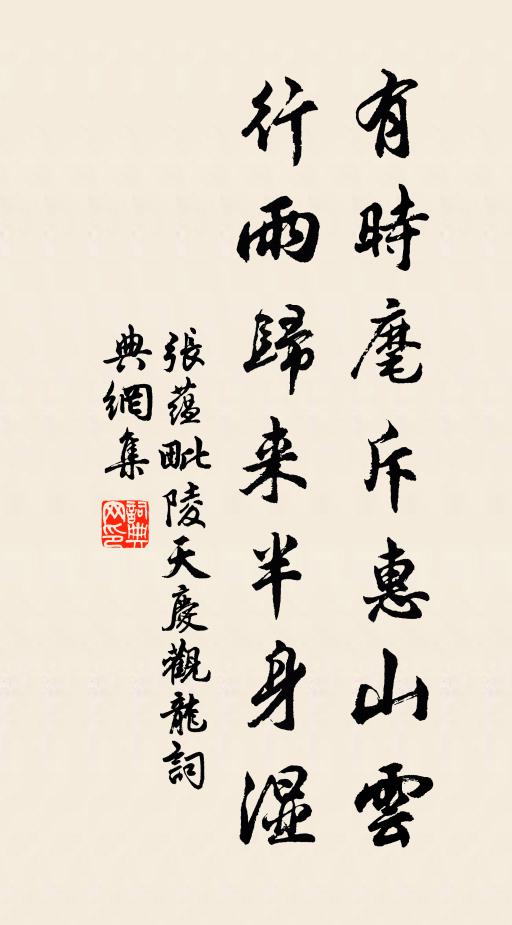 有時麾斥惠山雲
行雨歸来半身濕
張蘊毗陵天慶觀龍詞
典網集
詞典网印